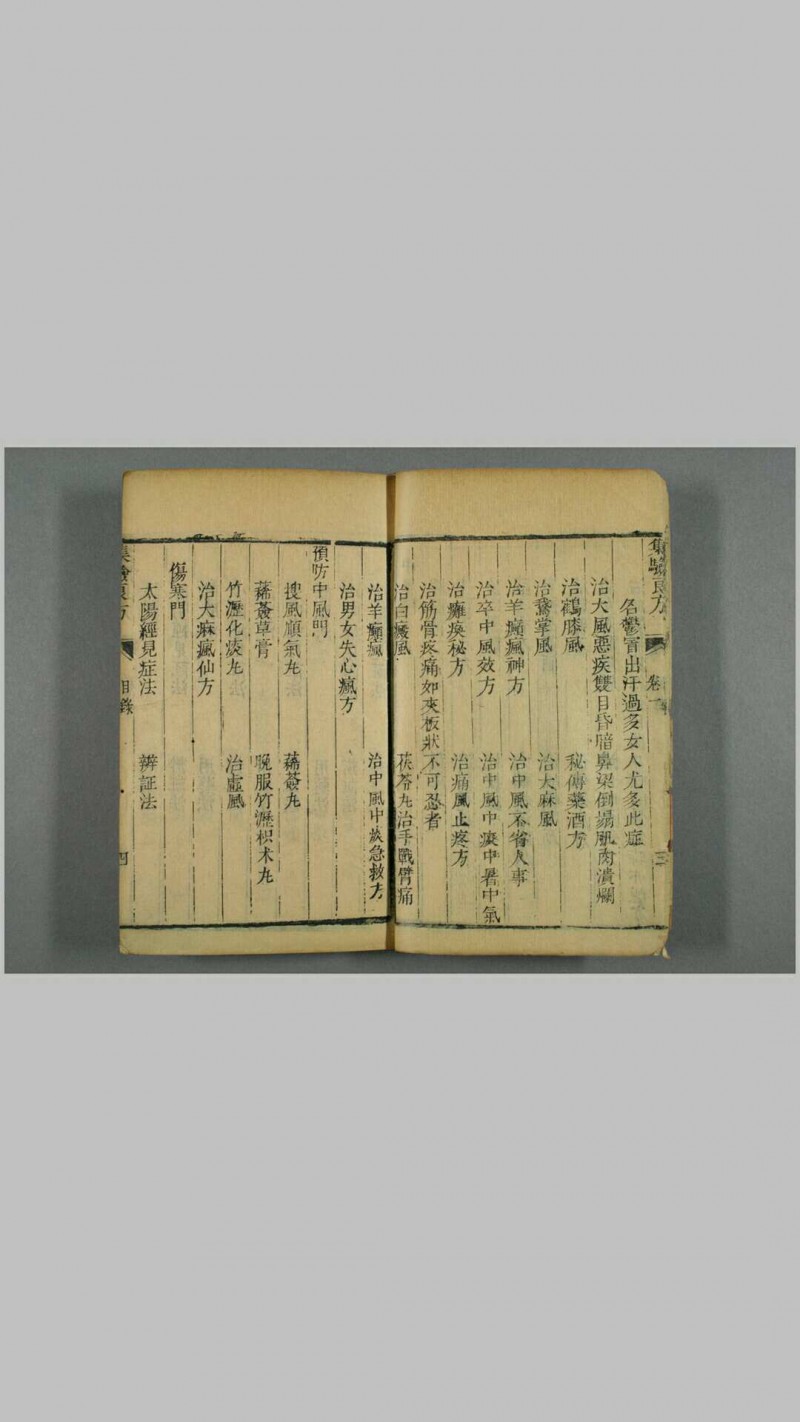 集驗良方 卷一 三
名鬱冒出汗過多女人尤多此症
治大風惡疾雙目昏暗鼻梁倒塌肌肉潰爛
治鶴膝風 秘傳藥酒方
治鵞掌風 治大麻風
治羊癲瘋神方 治中風不省人事
治卒中風效方 治中風中痰中暑中氣
治癱瘓秘方 治痛風止疼方
治筋骨疼痛如夾板狀不可忍者
治白癜風 茯苓丸治手戰臂痛
治羊癲瘋 治中風中痰急救方
治男女失心瘋方
預防中風門
搜風順氣丸 豨薟丸
豨薟草膏 晚服竹瀝枳朮丸
竹瀝化痰丸 治虛風
治大麻瘋仙方
傷寒門
太陽經見症法 辨証法
集驗良方 目錄 四